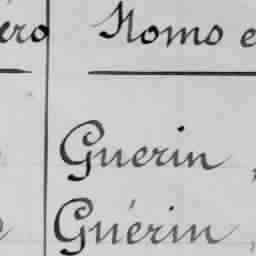 éro Noms e
Guerin ,
Guérin ,